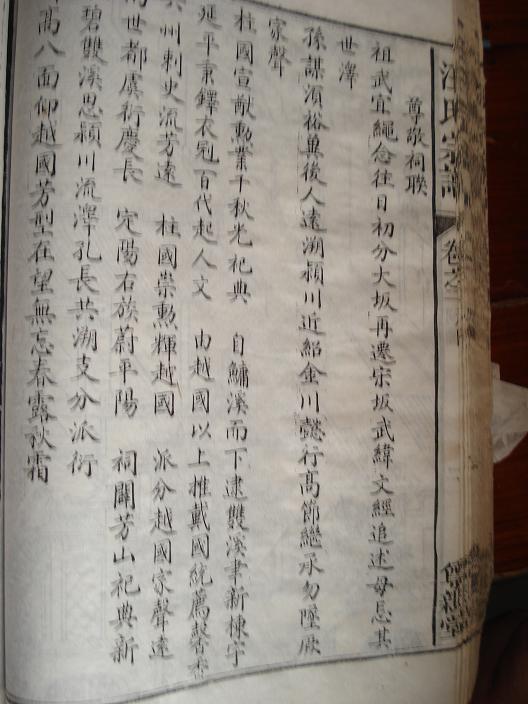 汪氏宗譜 卷之
尊敬祠联
祖武宜繩念往日初分大坂再遷宗坂武緯文經追述毋忘其
世澤
孫謀須裕冀後人遠溯潁川近紹金川懿行高節繼承勿墜厥
家聲
柱國宣猷勳業千秋光祀典 自鱅溪而下逮雙溪聿新棟宇
延平秉鐸衣冠百代起人文 由越國以上推戴國統薦馨香
州刺史流芳遠 柱國崇勳輝越國 派分越國家聲遠
世都虞衍慶長 定陽右族蔚平陽 祠闢芳山祀典新
碧雙溪思潁川流澤孔長共溯支分派衍
高八面仰越國芳型在望無忘春露秋霜